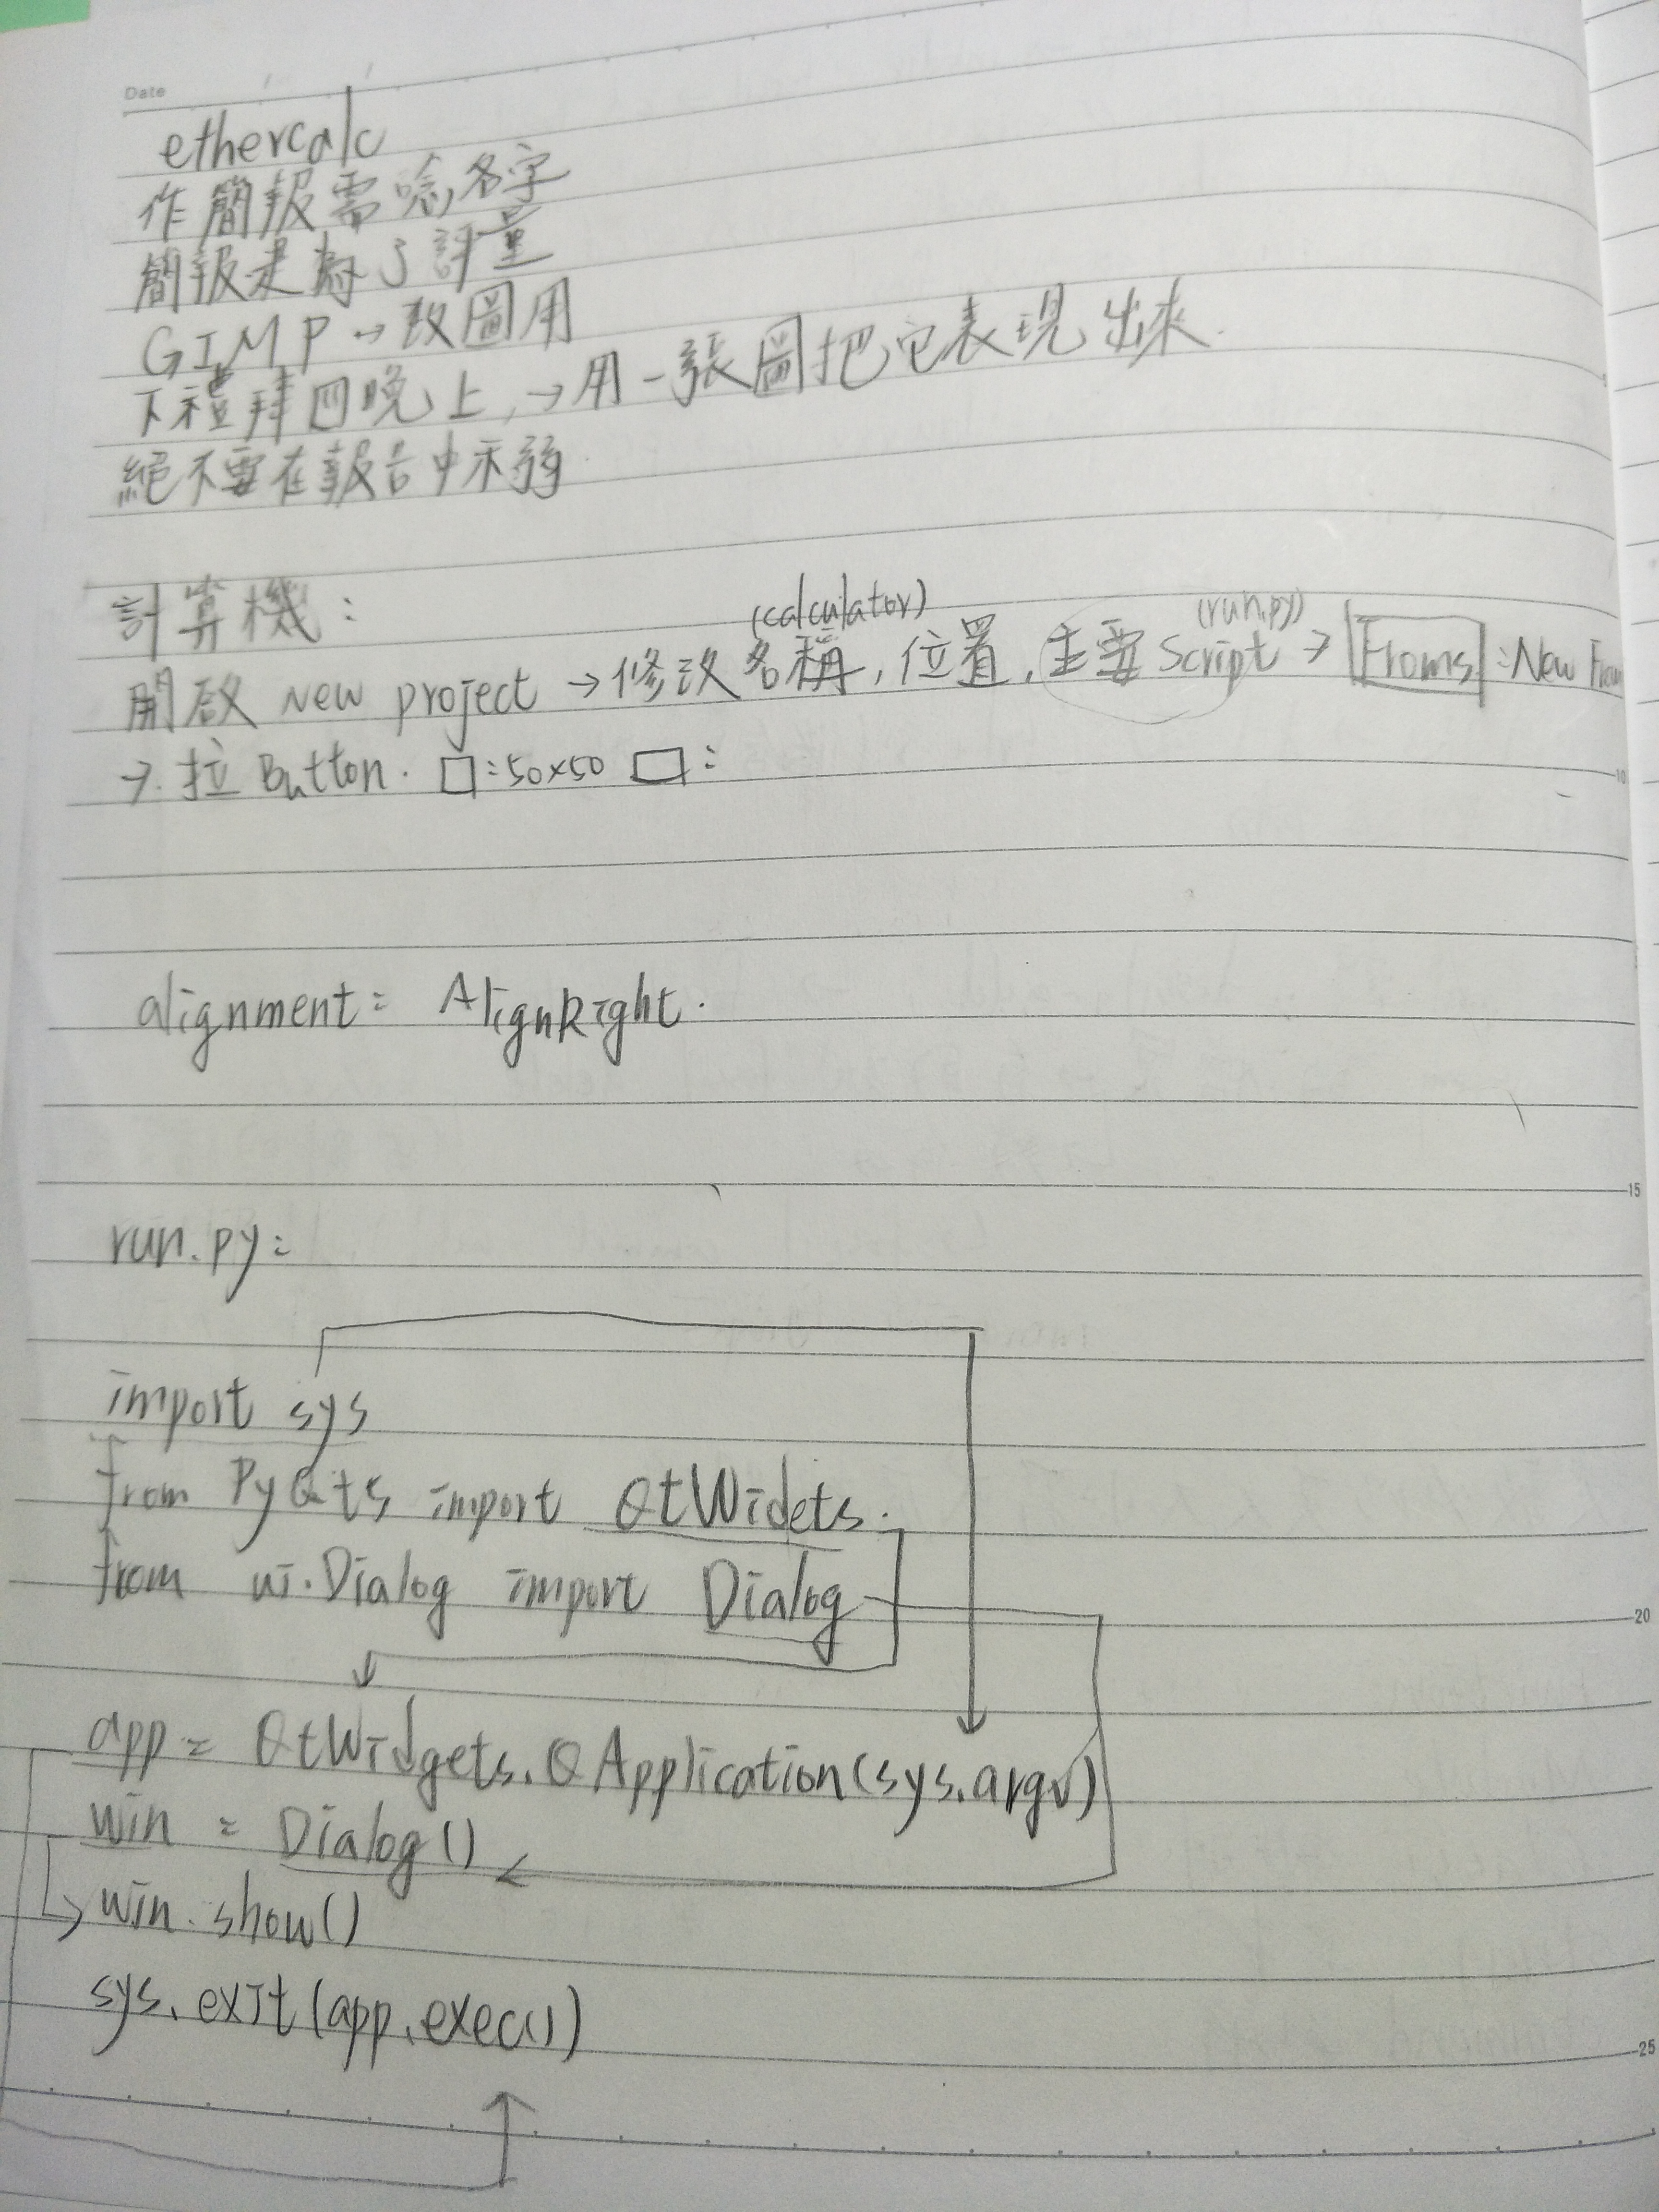 Date
ethercalc
作簡報需唸名字
簡報是為了評量
GIMP → 改圖用
下禮拜四晚上, → 用一張圖把它表現出來.
絕不要在報告中示弱
計算機:
(calculator) (run.py)
開啟 New project → 修改名稱, 位置, 主要 Script → Froms : New
→. 拉 Button. □:50x50 □:
10
alignment: AlignRight.
15
run.py:
import sys
from PyQt5 import QtWidets.
from ui.Dialog import Dialog
20
app = QtWidgets.QApplication(sys.argv)
win = Dialog()
win.show()
sys.exit(app.exec())
25